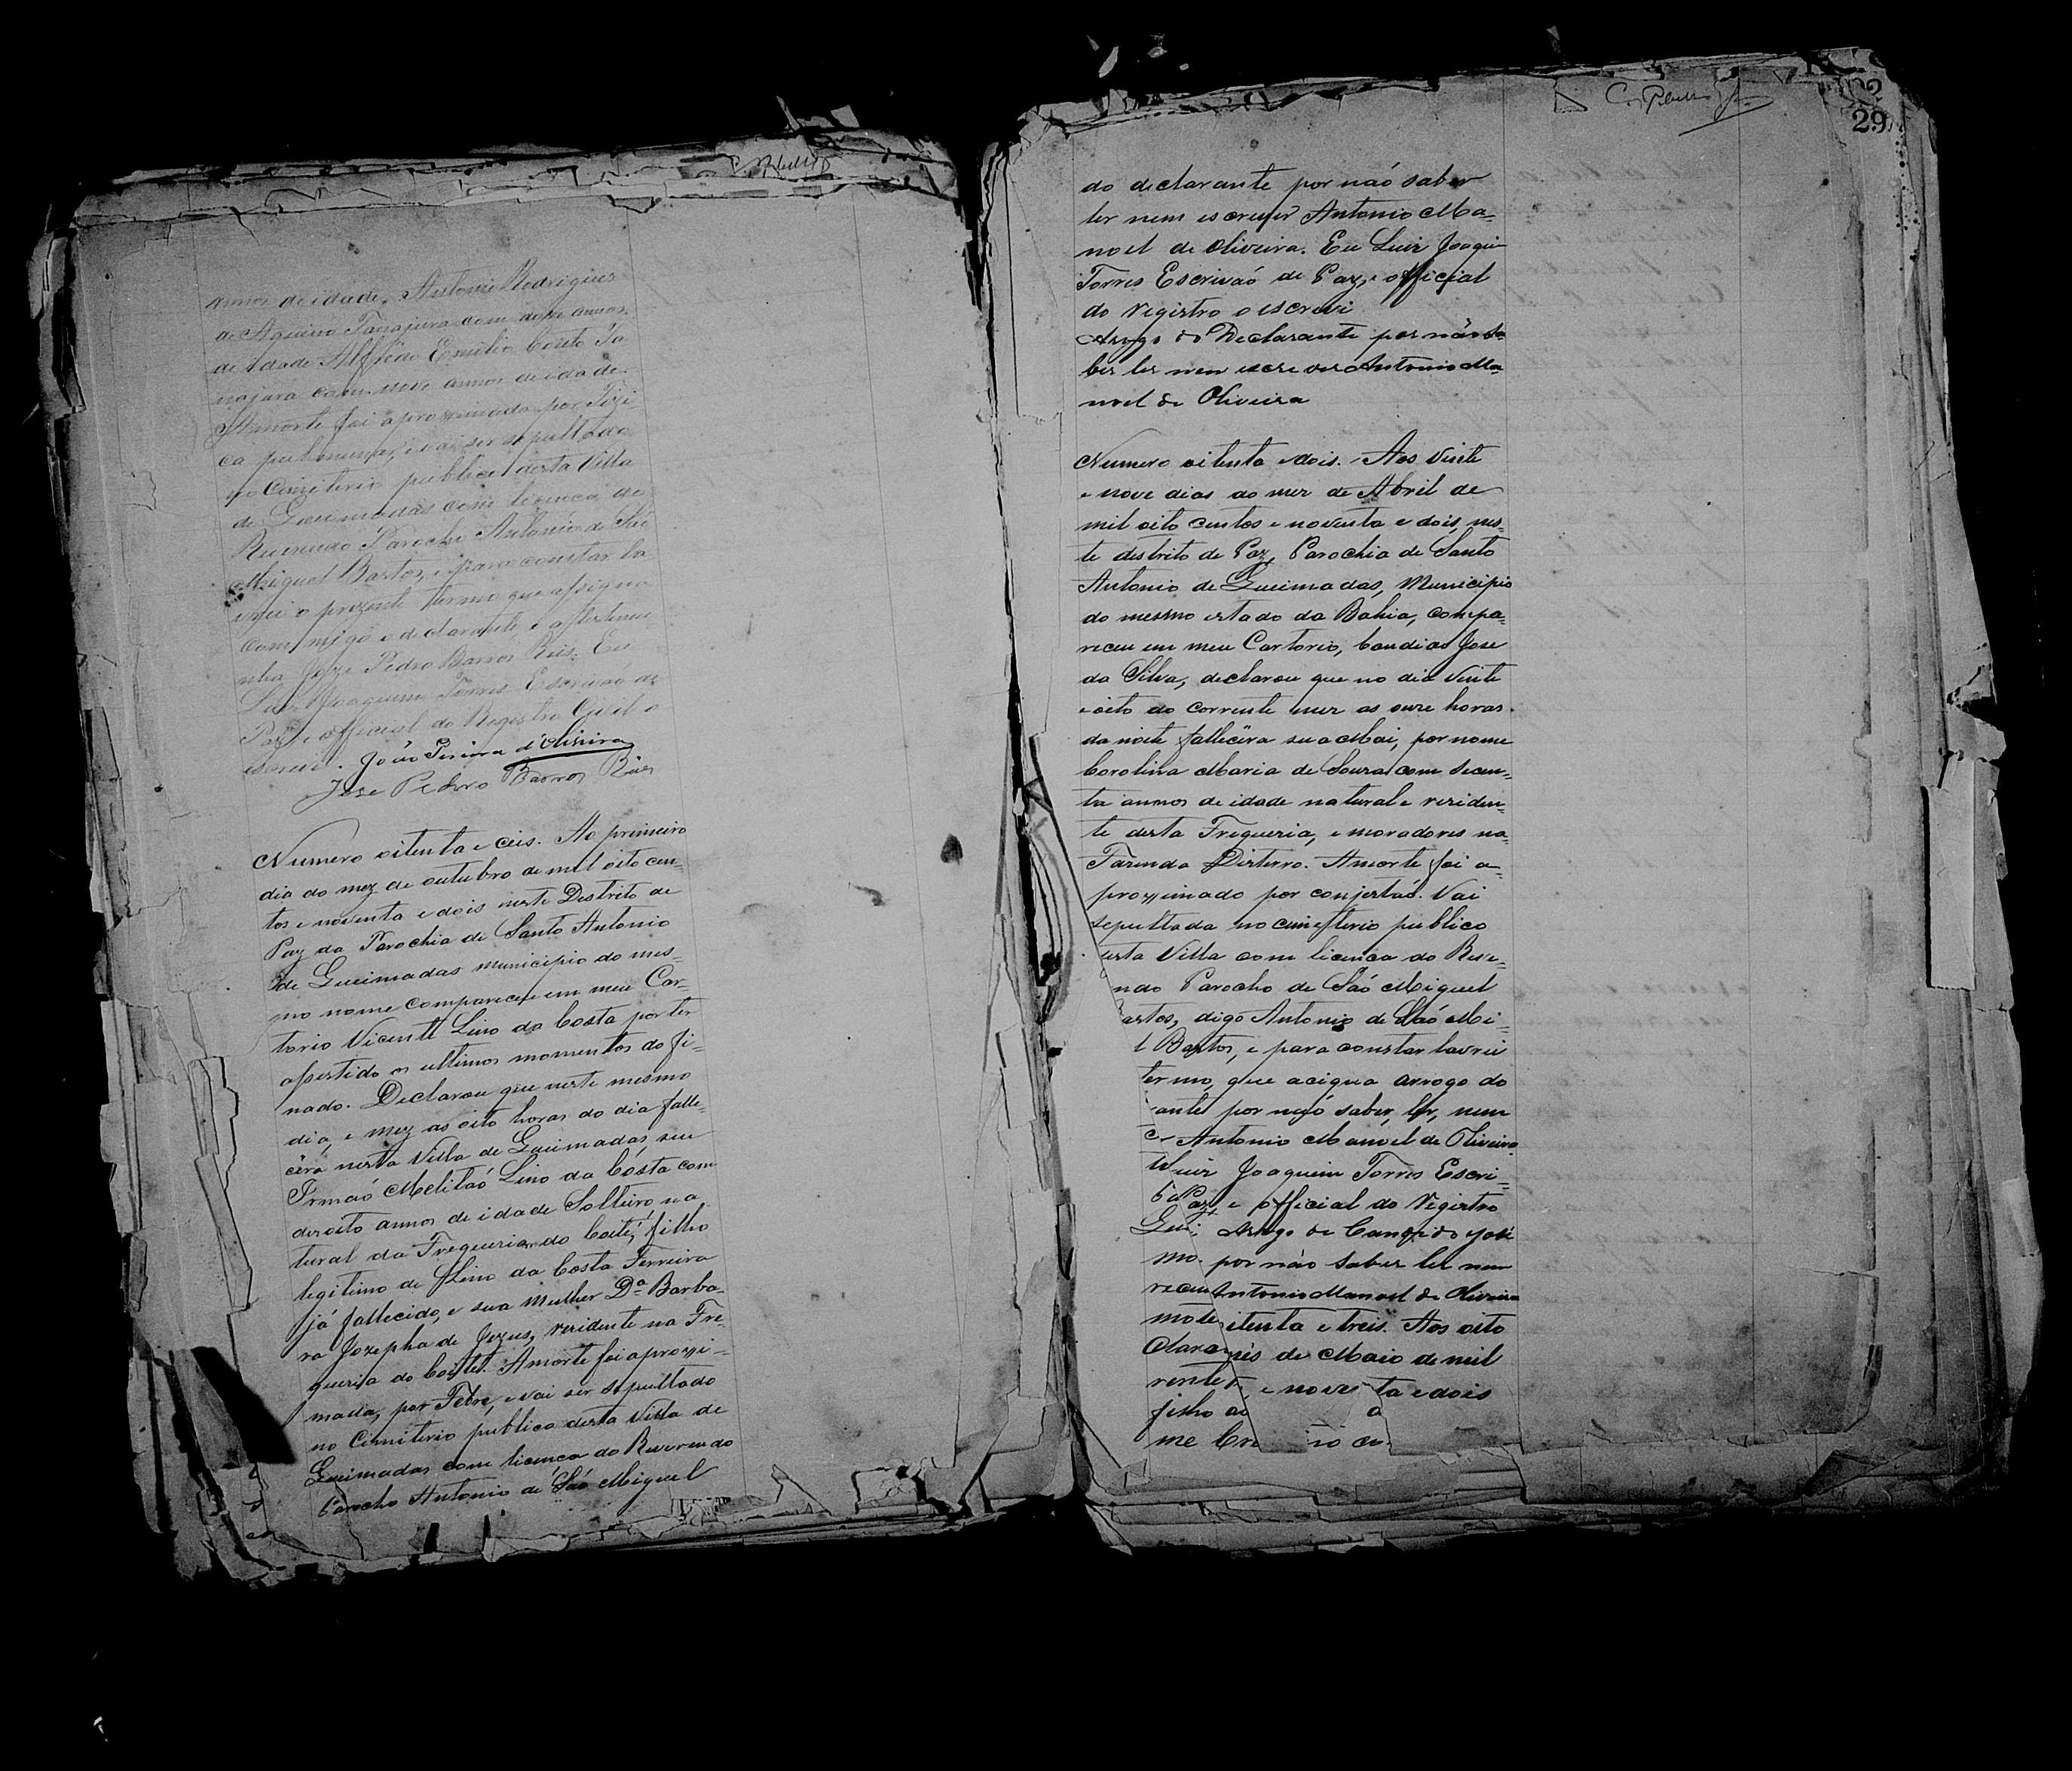 C. Rbello
annos de idade, Antonio Rodrigues
de Aquino Tanajura com deze annos
de idade Alffrêdo Emilio Couto Ta
najura com nove annos de idade.
A morte foi aproximada por Tizi-
ca pulmunar, e vai ser sepultado
no Cimiterio publico desta Villa
de Queimadas com licença do
Reverendo Parocho Antonio de Saó
Miguel Bastos, e para constar la
vrei o prezente termo que assigna
com migo o declarante e a testemu
nha Joze Pedro Barros Reis. Eu
Luiz Joaquim Torres Escrivaõ de
Paz, e official do Registro Civil o
escrevi. João Pereira d'Oliveira
José Pedro Barros Reis
Numero oitenta e ceis. Ao primeiro
dia do mez de outubro de mil oito cen-
tos e noventa e dois neste Destrito de
Paz da Parochia de Santo Antonio
de Queimadas municipio do mes-
mo nome compareceu em meu Car-
torio Vicente Lino da Costa por ter
assistido os ultimos momentos do fi-
nado. Declarou que neste mesmo
dia, e mez as oito horas do dia falle-
cêra nesta Villa de Queimadas seu
Irmaó Melitaó Lino da Costa com
dezoito annos de idade Solteiro, na
tural da Freguezia do Coité, filho
legitimo de Lino da Costa Ferreira
já fallecido, e sua mulher Dª Barba-
ra Jozepha de Jezus, rezidente na Fre-
guezia do Coité. A morte foi aproxi-
mada, por Febre, e vai ser sepultado
no Cimiterio publico desta Villa de
Queimadas com licenca do Reverendo
Parocho Antonio de Saó Miguel
29
do declarante por naó saber
ler nem escrever Antonio Ma-
noel de Oliveira. Eu Luiz Joaqui
Torres Escrivaó de Paz, e official
do registro o escrevi
Arogo do Declarante por não sa-
ber ler nem escrever Antonio Ma-
noel de Oliveira
Numero oitenta e dois. Aos Vinte
e nove dias do mez de Abril de
mil oito centos e noventa e dois, nes-
te destrito de Paz, Parochia de Santo
Antonio de Queimadas, Municipio
do mesmo estado da Bahia, compa-
receu em meu Cartorio, Candido Jose
da Silva, declarou que no dia Vinte
e oito do corrente mez as onze horas
da noite falleêcra sua Mai, por nome
Carolina Maria de Souza com secen-
ta annos de idade natural e reziden-
te desta Fregueria, e moradores na
Fazenda Disterro. A morte foi a-
proximado por conjestaó. Vai
sepultada no cimeterio publico
desta Villa com licenca do Reve-
ndo Parocho de Saó Miguel
astos, digo Antonio de Saó Mi-
l Bastos, e para constar lavrei
termo, que acigna arrogo do
ante por naó saber, ler, nem
Antonio Manoel de Oliveira
Luiz Joaquim Torres Escri-
Paz, e official do registro
Arogo de Candido José
por não saber ler nem
Antonio Manoel de Oliveira
itenta e treis. Aos oito
mês de Maio de mil
e noventa e dois